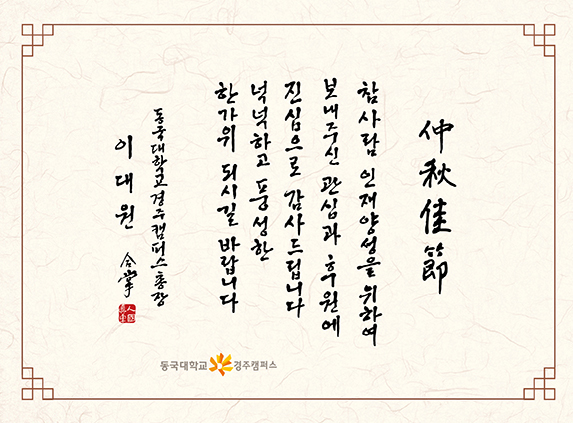 仲秋佳節
참사람 인재양성을 위하여
보내주신 관심과 후원에
진심으로 감사드립니다
넉넉하고 풍성한
한가위 되시길 바랍니다
동국대학교경주캠퍼스총장
이대원 合掌
동국대학교 경주캠퍼스